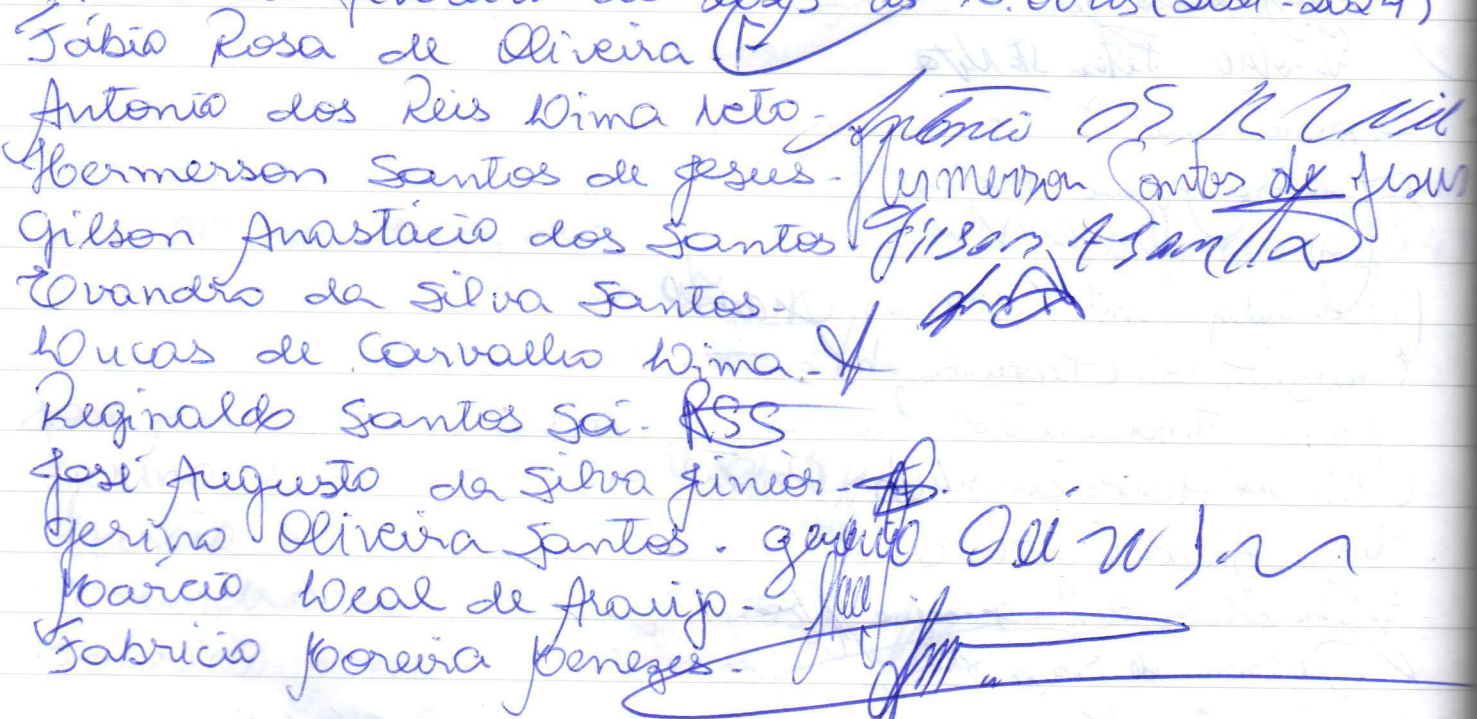 fevereiro de às (2021-2024)
Fábio Rosa de Oliveira
Antonio dos Reis Lima Neto - Antonio
Hermerson Santos de Jesus - Hermerson Santos de Jesus
Gilson Anastácio dos Santos. Gilson A Santos
Evandro da Silva Santos -
Lucas de Carvalho Lima -
Reginaldo Santos Sá - RSS
José Augusto da Silva Júnior -
Gerino Oliveira Santos. gerino
Marcio Leal de Araujo -
Fabricio Moreira Menezes -